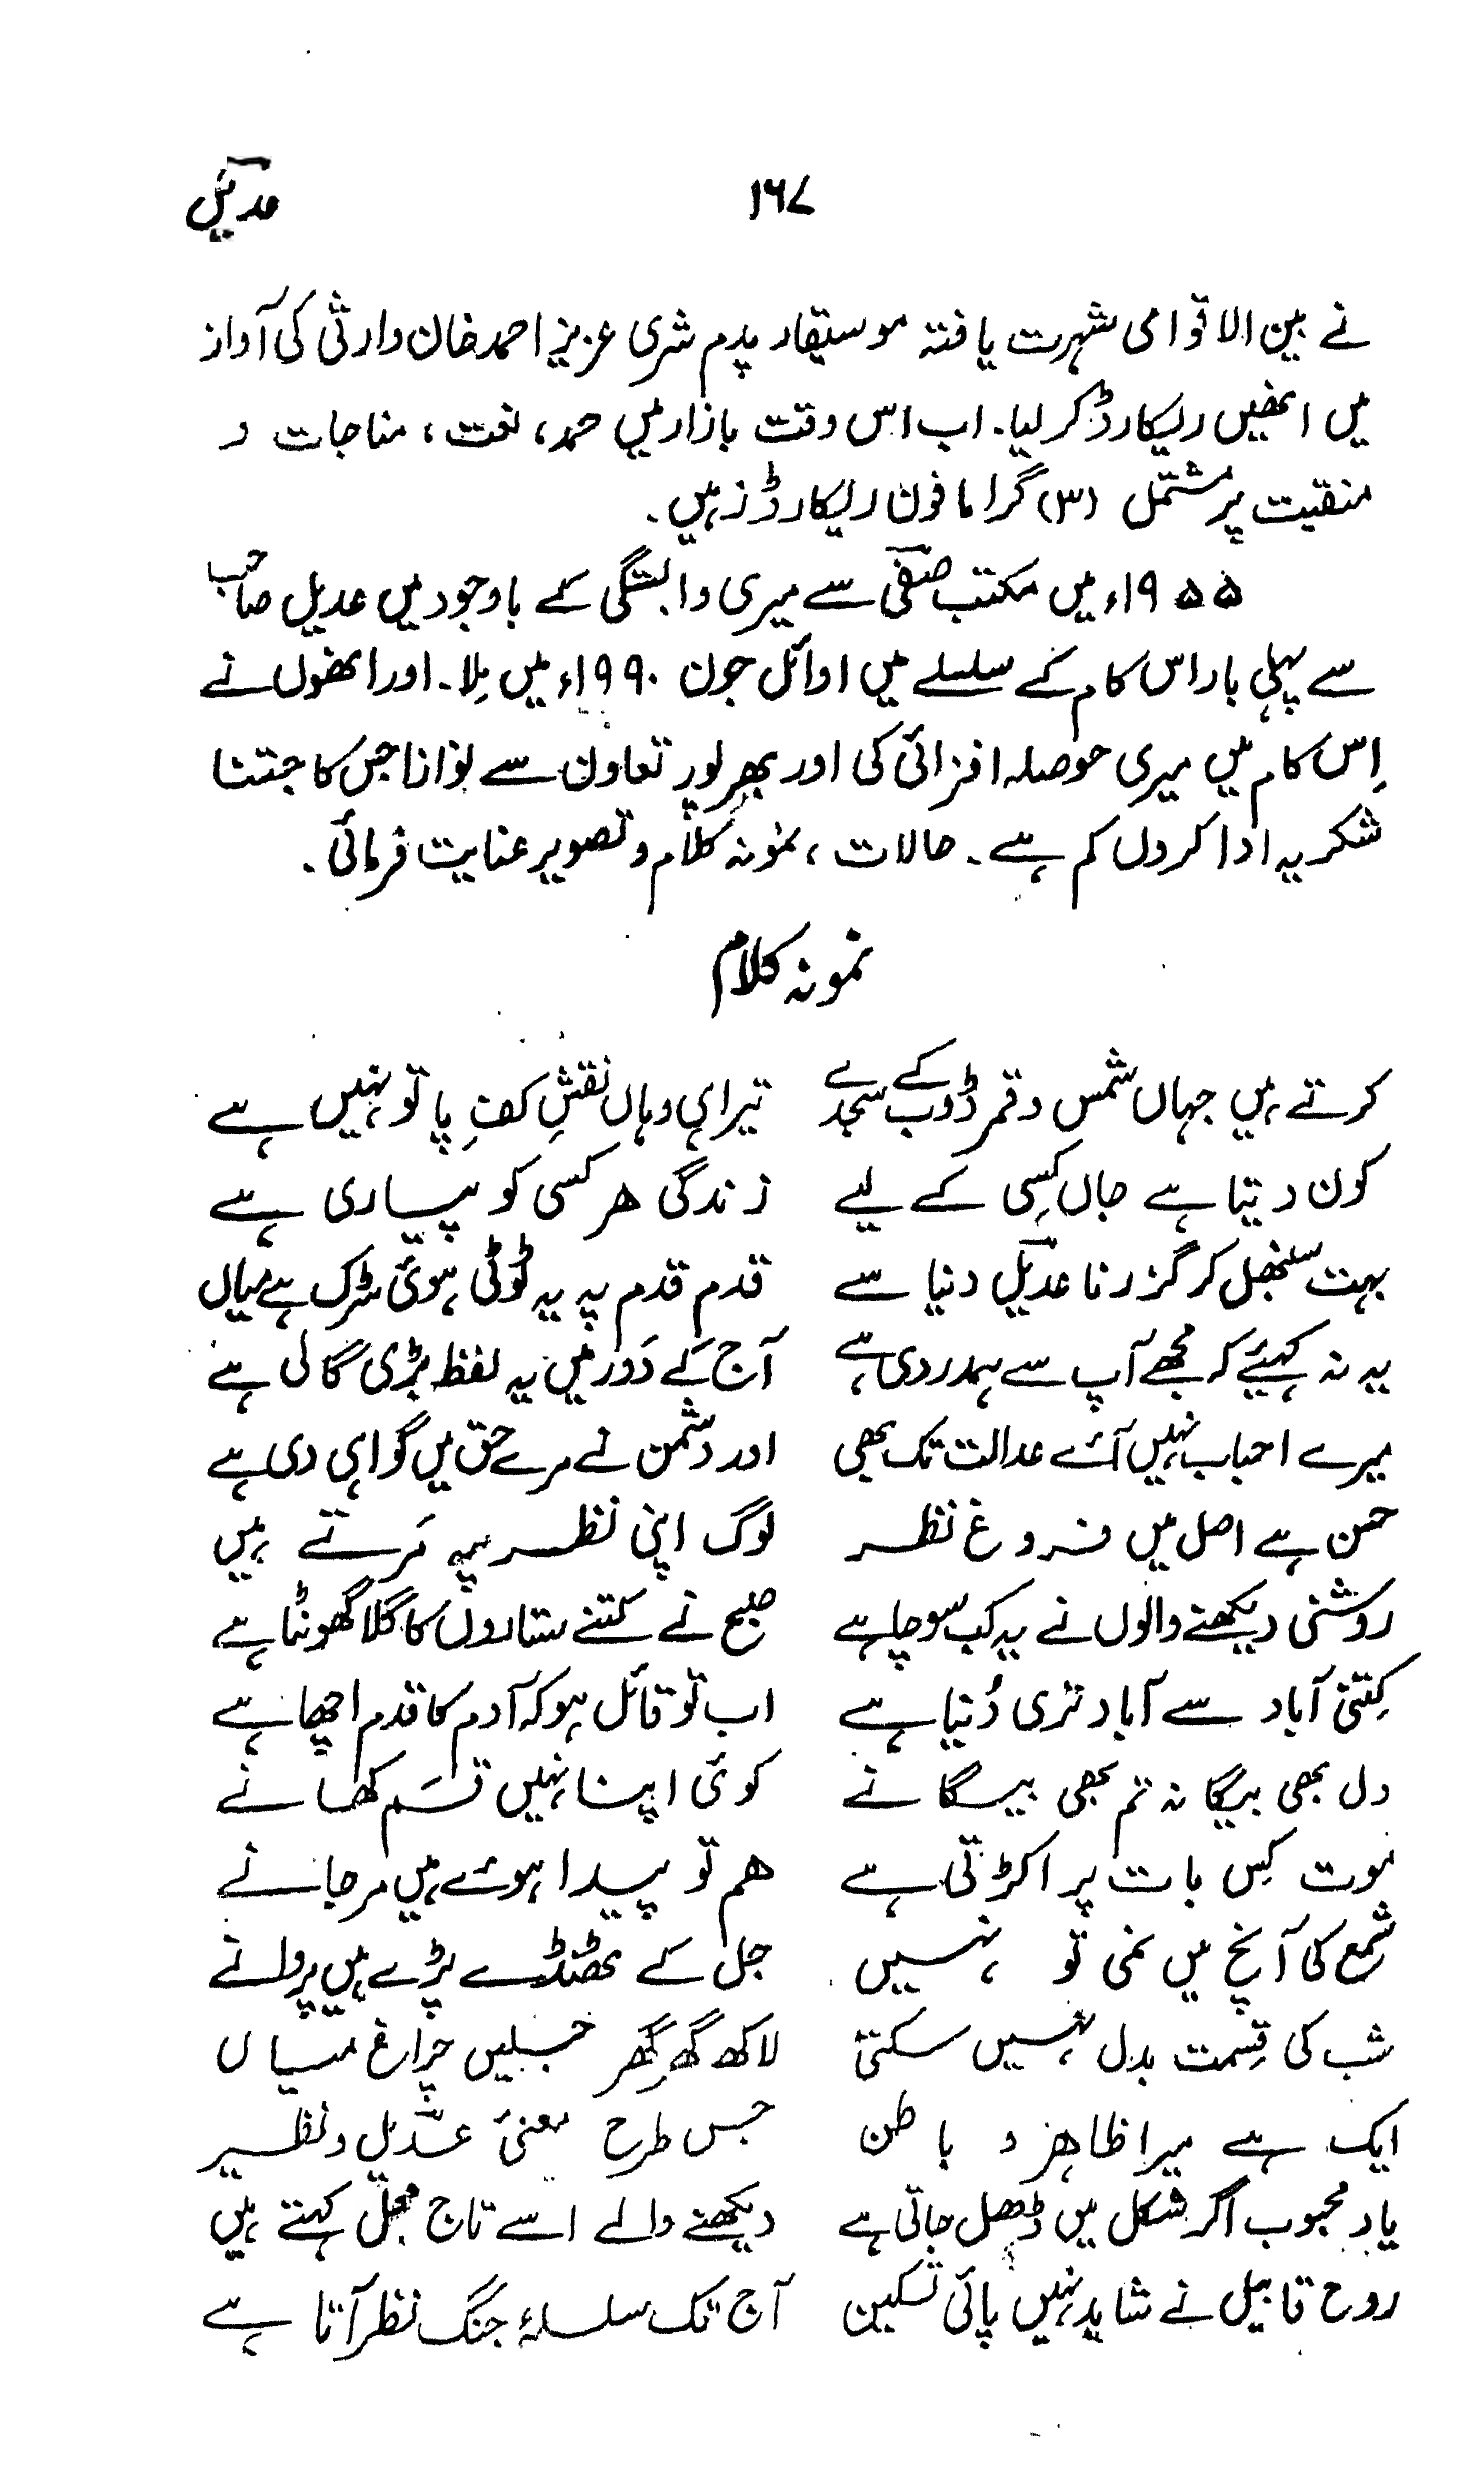 ۱۶۷ عدیلؔ
نے بین الاقوامی شہرت یافتہ موسیقار پدم شری عزیز احمد خان وارثی کی آواز
میں انھیں ریکارڈ کر لیا۔ اب اس وقت بازار میں حمد، نعت، مناجات و
منقبت پر مشتمل (۳) گراما فون ریکارڈز ہیں۔
۱۹۵۵ء میں مکتب صفیؔ سے میری وابستگی کے باوجود میں عدیل صاحب
سے پہلی بار اس کام کے سلسلے میں اوائل جون ۱۹۹۰ء میں مِلا۔ اور انھوں نے
اِس کام میں میری حوصلہ افزائی کی اور بھرپور تعاون سے نوازا جس کا جتنا
شکریہ ادا کروں کم ہے۔ حالات، نمونہ کلام و تصویر عنایت فرمائی۔
نمونہ کلام
کرتے ہیں جہاں شمس و قمر ڈوب کے سجدے تیرا ہی وہاں نقشِ کفِ پا تو نہیں ہے
کون دیتا ہے جاں کسِی کے لیے زندگی ھر کسی کو پیاری ہے
بہت سنبھل کر گزرنا عدیلؔ دنیا سے قدم قدم پہ یہ ٹوٹی ہوئی سڑک ہے میاں
یہ نہ کہیئے کہ مجھے آپ سے ہمدردی ہے آج کے دَور میں یہ لفظ بڑی گالی ہے
میرے احباب نہیں آئے عدالت تک بھی اور دشمن نے مرے حق میں گواہی دی ہے
حسن ہے اصل میں فروغ نظر لوگ اپنی نظر پہ مَرتے ہیں
روشنی دیکھنے والوں نے یہ کب سوچا ہے صبح نے کتنے ستاروں کا گلا گھونٹا ہے
کِتنی آباد سے آباد تری دُنیا ہے اب تو قائل ہو کہ آدم کا قدم اچھا ہے
دل بھی بیگانہ تم بھی بیگانے کوئی اپنا نہیں قسَم کھانے
موت کِس بات پر اکڑتی ہے ھم تو پیدا ہوئے ہیں مرجانے
شمع کی آنچ میں نمی تو نہیں جل کے ٹھنڈے پڑے ہیں پروانے
شب کی قِسمت بدل نہیں سکتی لاکھ گھر گھر جلیں چراغ میاں
ایک ہے میرا ظاھر و باطن جس طرح معنیٔ عدیلؔ و نظیر
یاد محبوب اگر شکل میں ڈھل جاتی ہے دیکھنے والے اسے تاج محل کہتے ہیں
روح قابیل نے شاید نہیں پائی تسکین آج تک سلسلۂ جنگ نظر آتا ہے